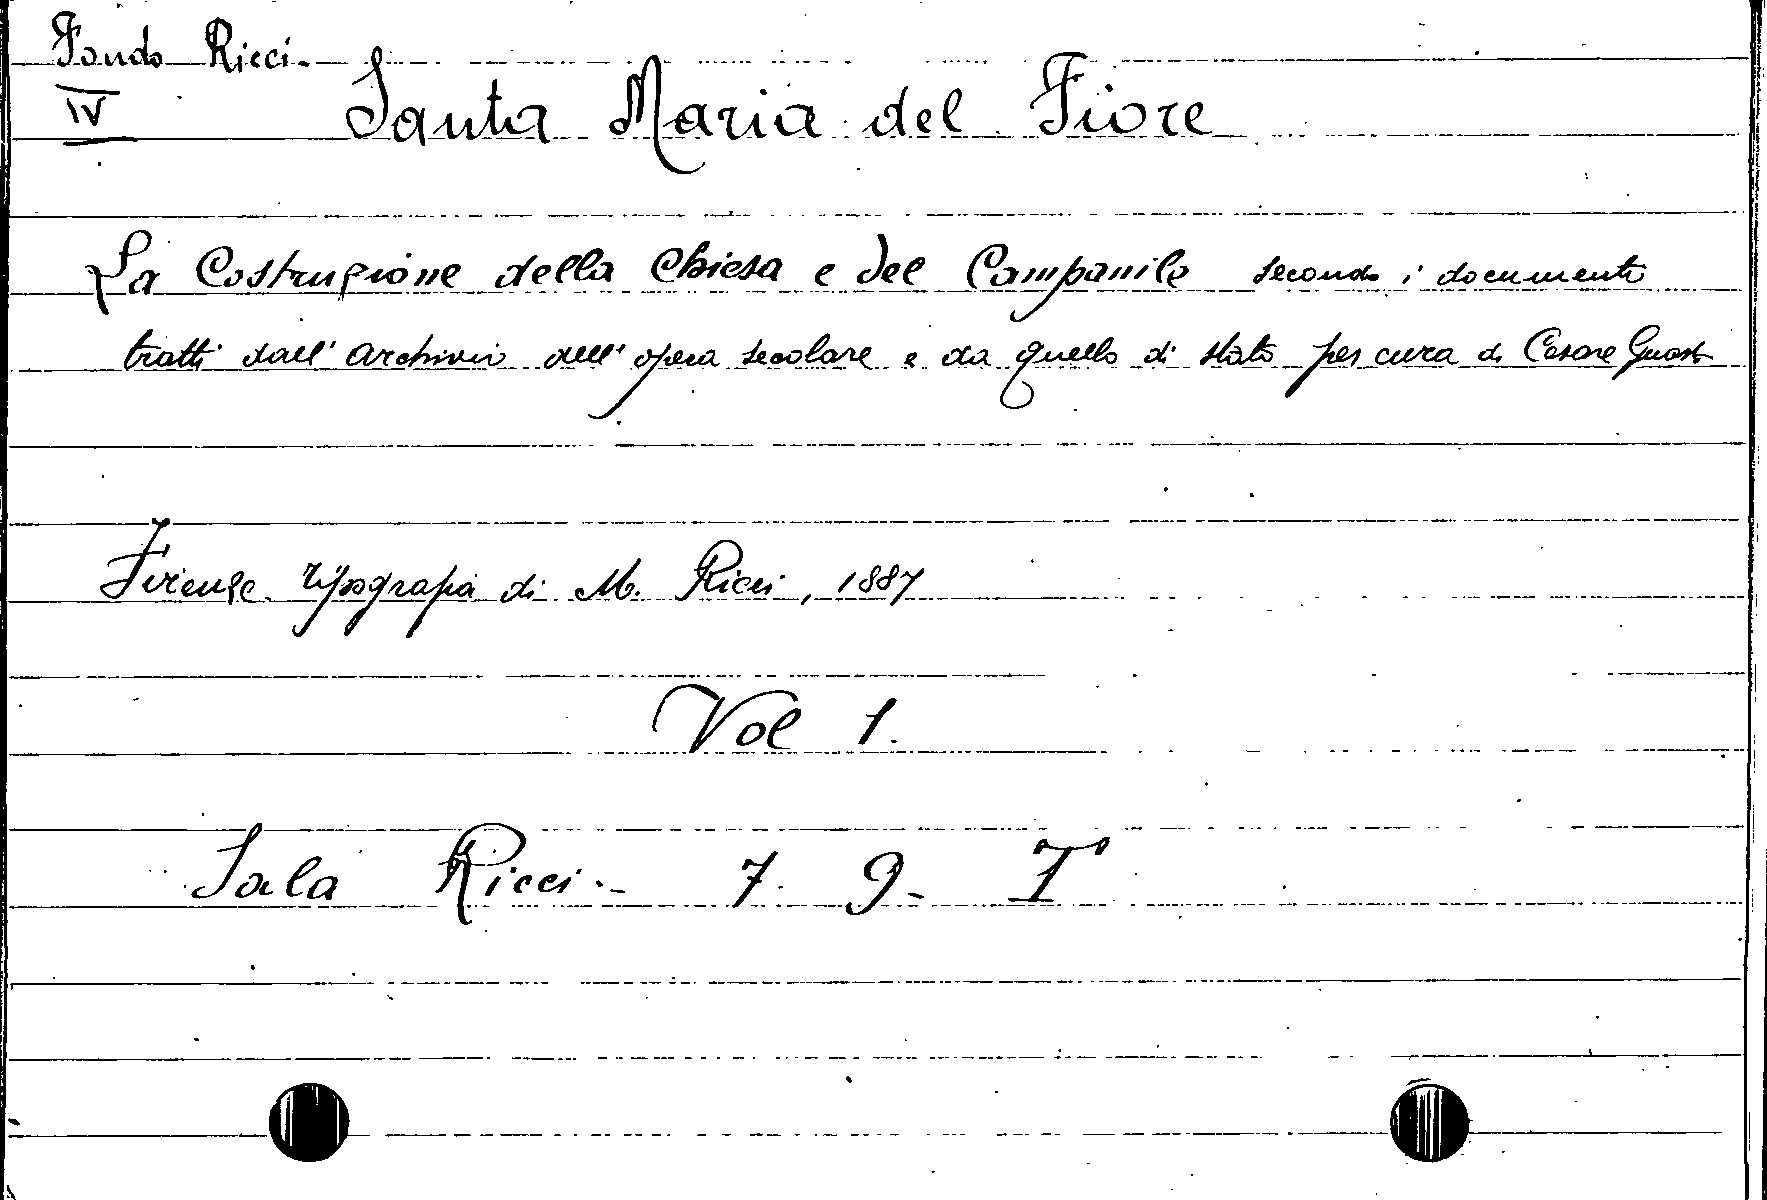 Fondo Ricci.
IV
Santa Maria del Fiore
La Costruzione della Chiesa e del Campanile secondo i documenti
tratti dall' archivio dell' opera secolare e da quello di stato per cura di Cesare Guasti
Firenze. tipografia di M. Ricci, 1887
Vol 1.
Sala Ricci.- 7. 9. I